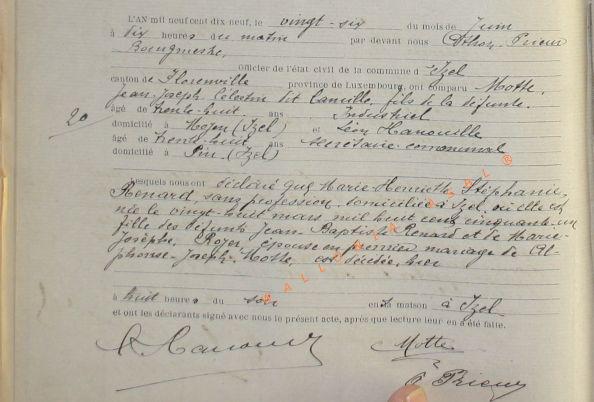 L'AN mil neuf cent dix-neuf, le vingt-six du mois de Juin
à dix heures du matin par devant nous Othon Prieur
Bourgmestre
officier de l'état civil de la commune d'Izel
canton de Florenville province de Luxembourg, ont comparu Motte,
Jean-Joseph Célestin dit Camille, fils de la défunte,
20
âgé de trente-huit ans Industriel
domicilié à Moyen (Izel) et Léon Hanouille
âgé de trente-huit ans secrétaire communal
domicilié à Pin (Izel)
Lesquels nous ont déclaré que Marie-Henriette Stéphanie
Renard, sans profession, domiciliée à Izel, où elle est
née le vingt-huit mars mil huit cent cinquante-un
fille des défunts Jean-Baptiste Renard et de Marie-
Josèphe Rozet, épouse en premier mariage de Al-
phonse-Joseph Motte, est décédée, hier
à huit heures du soir en sa maison à Izel
et ont les déclarants signé avec nous le présent acte, après que lecture leur en a été faite.
Motte
O Prieur